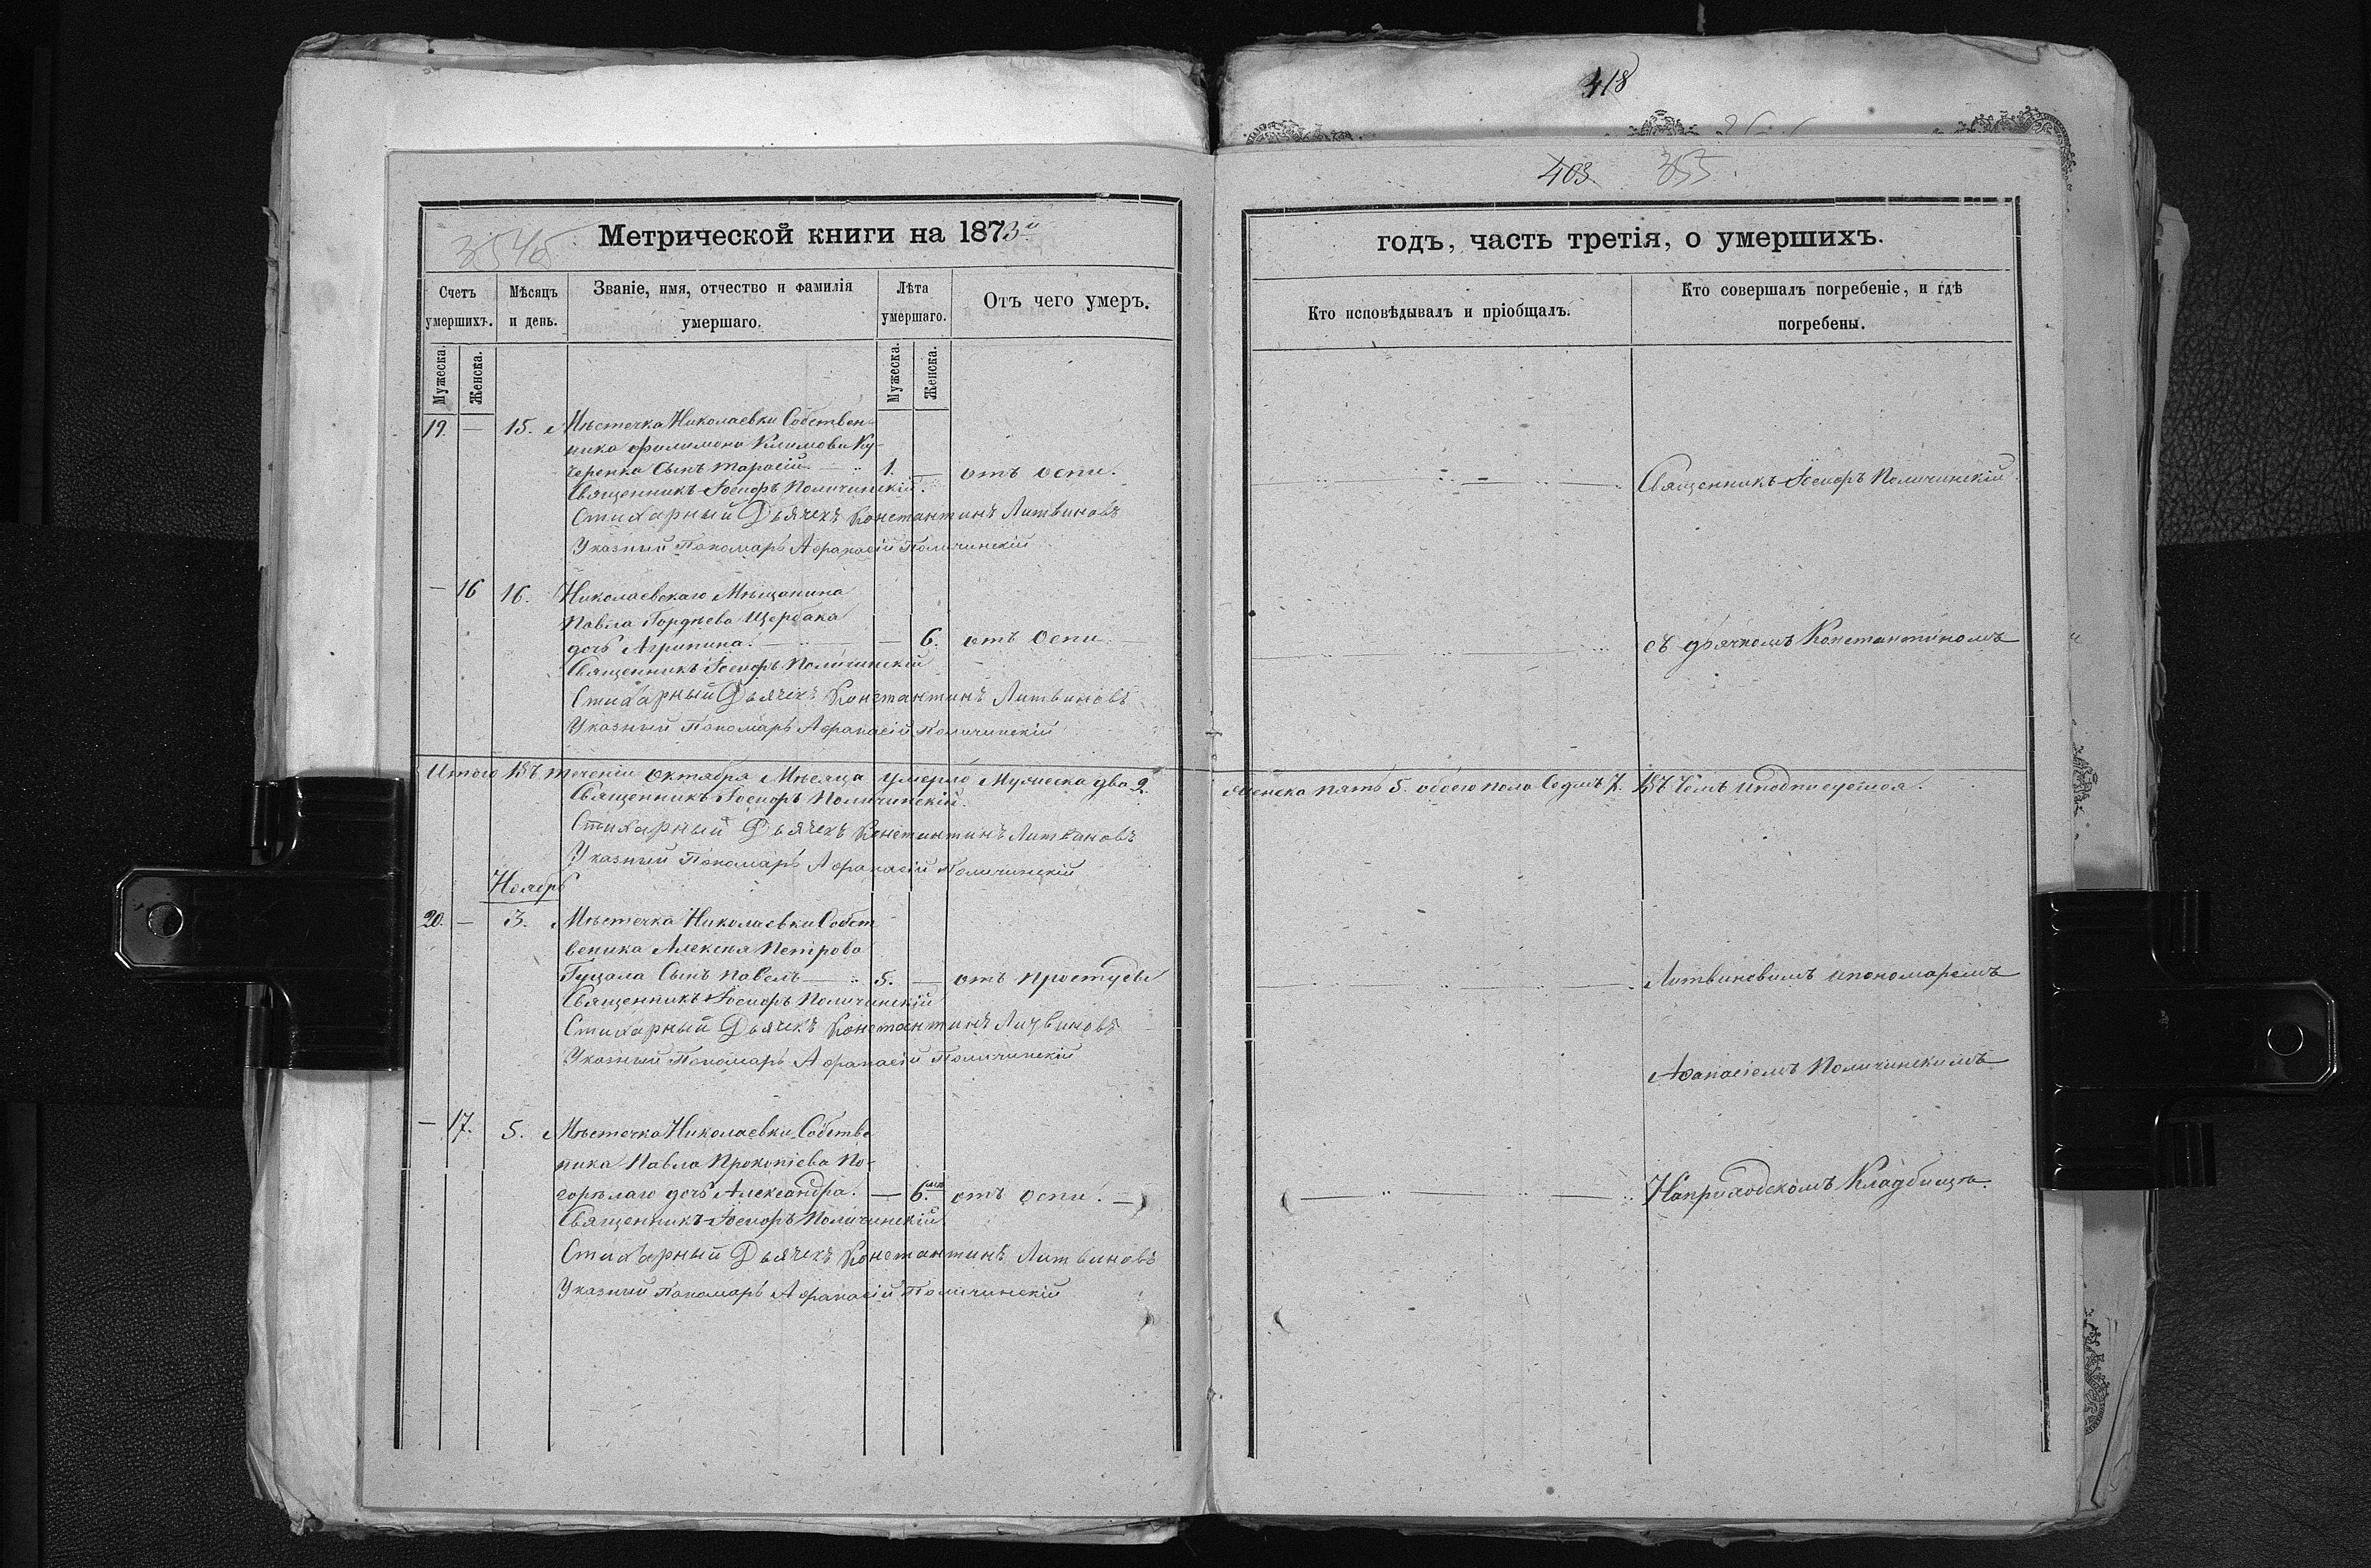 418
403. 355.
354об.
Метрической книги на 1873й
годъ, часть третія, о умершихъ.
Счетъ умершихъ.
Мѣсяцъ и день.
Званіе, имя, отчество и фамилія умершаго.
Лѣта умершаго.
Отъ чего умеръ.
Кто исповѣдывалъ и пріобщалъ.
Кто совершалъ погребеніе, и гдѣ погребены.
Мужеска. Женска. Мужеска. Женска.
19. — 15. Мѣстечка Николаевки Собствен-
ника Филимона Климова Ку-
черенка Сынъ Тарасій — 1. — отъ оспи. Священникъ Іосифъ Поличинскій
Священникъ Іосифъ Поличинскій.
Стихарный Дьячекъ Константинъ Литвиновъ
Указный Пономарь Афанасій Поличинскій
— 16 16. Николаевскаго Мѣщанина
Павла Гордѣева Щербака
дочь Агрипина. — — 6. отъ Оспи. съ дьячкомъ Константиномъ
Священникъ Іосифъ Поличинскій
Стихарный Дьячекъ Константинъ Литвиновъ
Указный Пономарь Афанасій Поличинскій
Итого Въ теченіи Октября Мѣсяца умерло Мужеска два 2. Женска пять 5. обоего пола Седмъ 7. Въ Чемъ иподписуемся.
Священникъ Іосифъ Поличинскій.
Стихарный Дьячекъ Константинъ Литвановъ
Указный Пономарь Афанасій Поличинскій
Ноябрь
20. — 3. Мѣстечка Николаевки Собст
веника Алексѣя Петрова
Гуцала Сынъ Павелъ — 5. — отъ простуды Литвиновимъ ипономаремъ
Священникъ Іосифъ Поличинскій
Стихарный Дьячекъ Константинъ Литвиновъ
Указный Пономарь Афанасій Поличинскій
Афанасіемъ Поличинскимъ
— 17. 5. Мѣстечка Николаевки Собстве
ника Павла Прокопіева По-
горѣлаго дочь Александра. — 6. отъ оспи. — Наприходскомъ Кладбищѣ.
Священникъ Іосифъ Поличинскій
Стихарный Дьячекъ Константинъ Литвиновъ
Указный Пономарь Афанасій Поличинскій